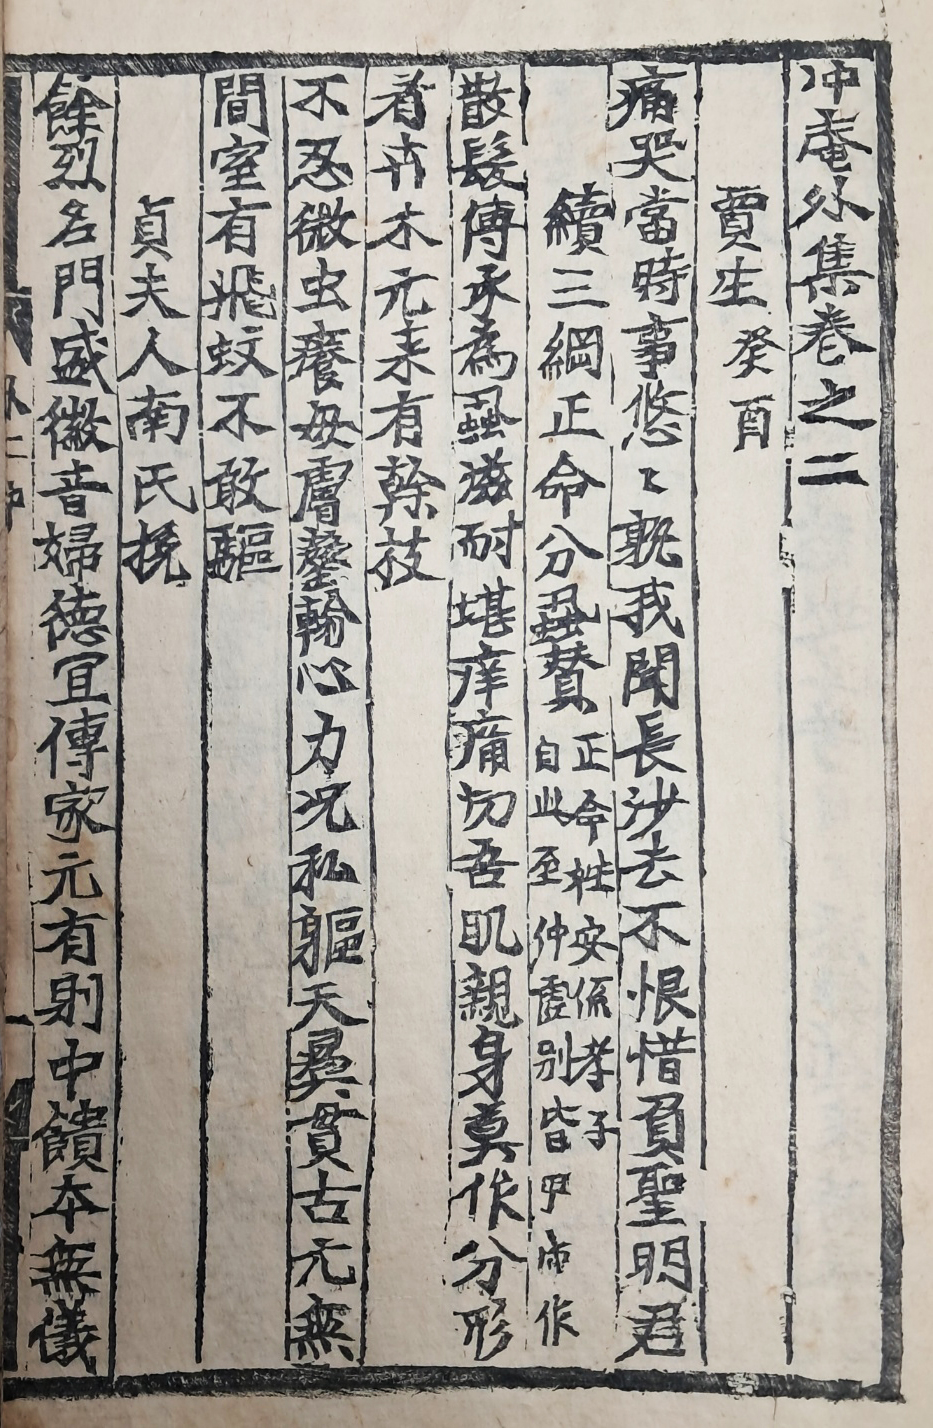 冲庵外集卷之二
賈生 癸酉
痛哭當時事悠〻 孰我聞長沙去不恨惜負聖明君
續三綱正命分蝨贊 正命姓安係孝子 自此至仲雲別皆甲戌作
散髮傳承為蝨滋耐堪痒痛切吾肌親身莫作分形
看卉木元来有榦枝
不忍微虫癢毋膚鏊輪心力况私軀天彛貫古元無
間室有飛蚊不敢驅
貞夫人南氏挽
餘烈名門盛徽音婦德宜傳家元有則中饋本無儀